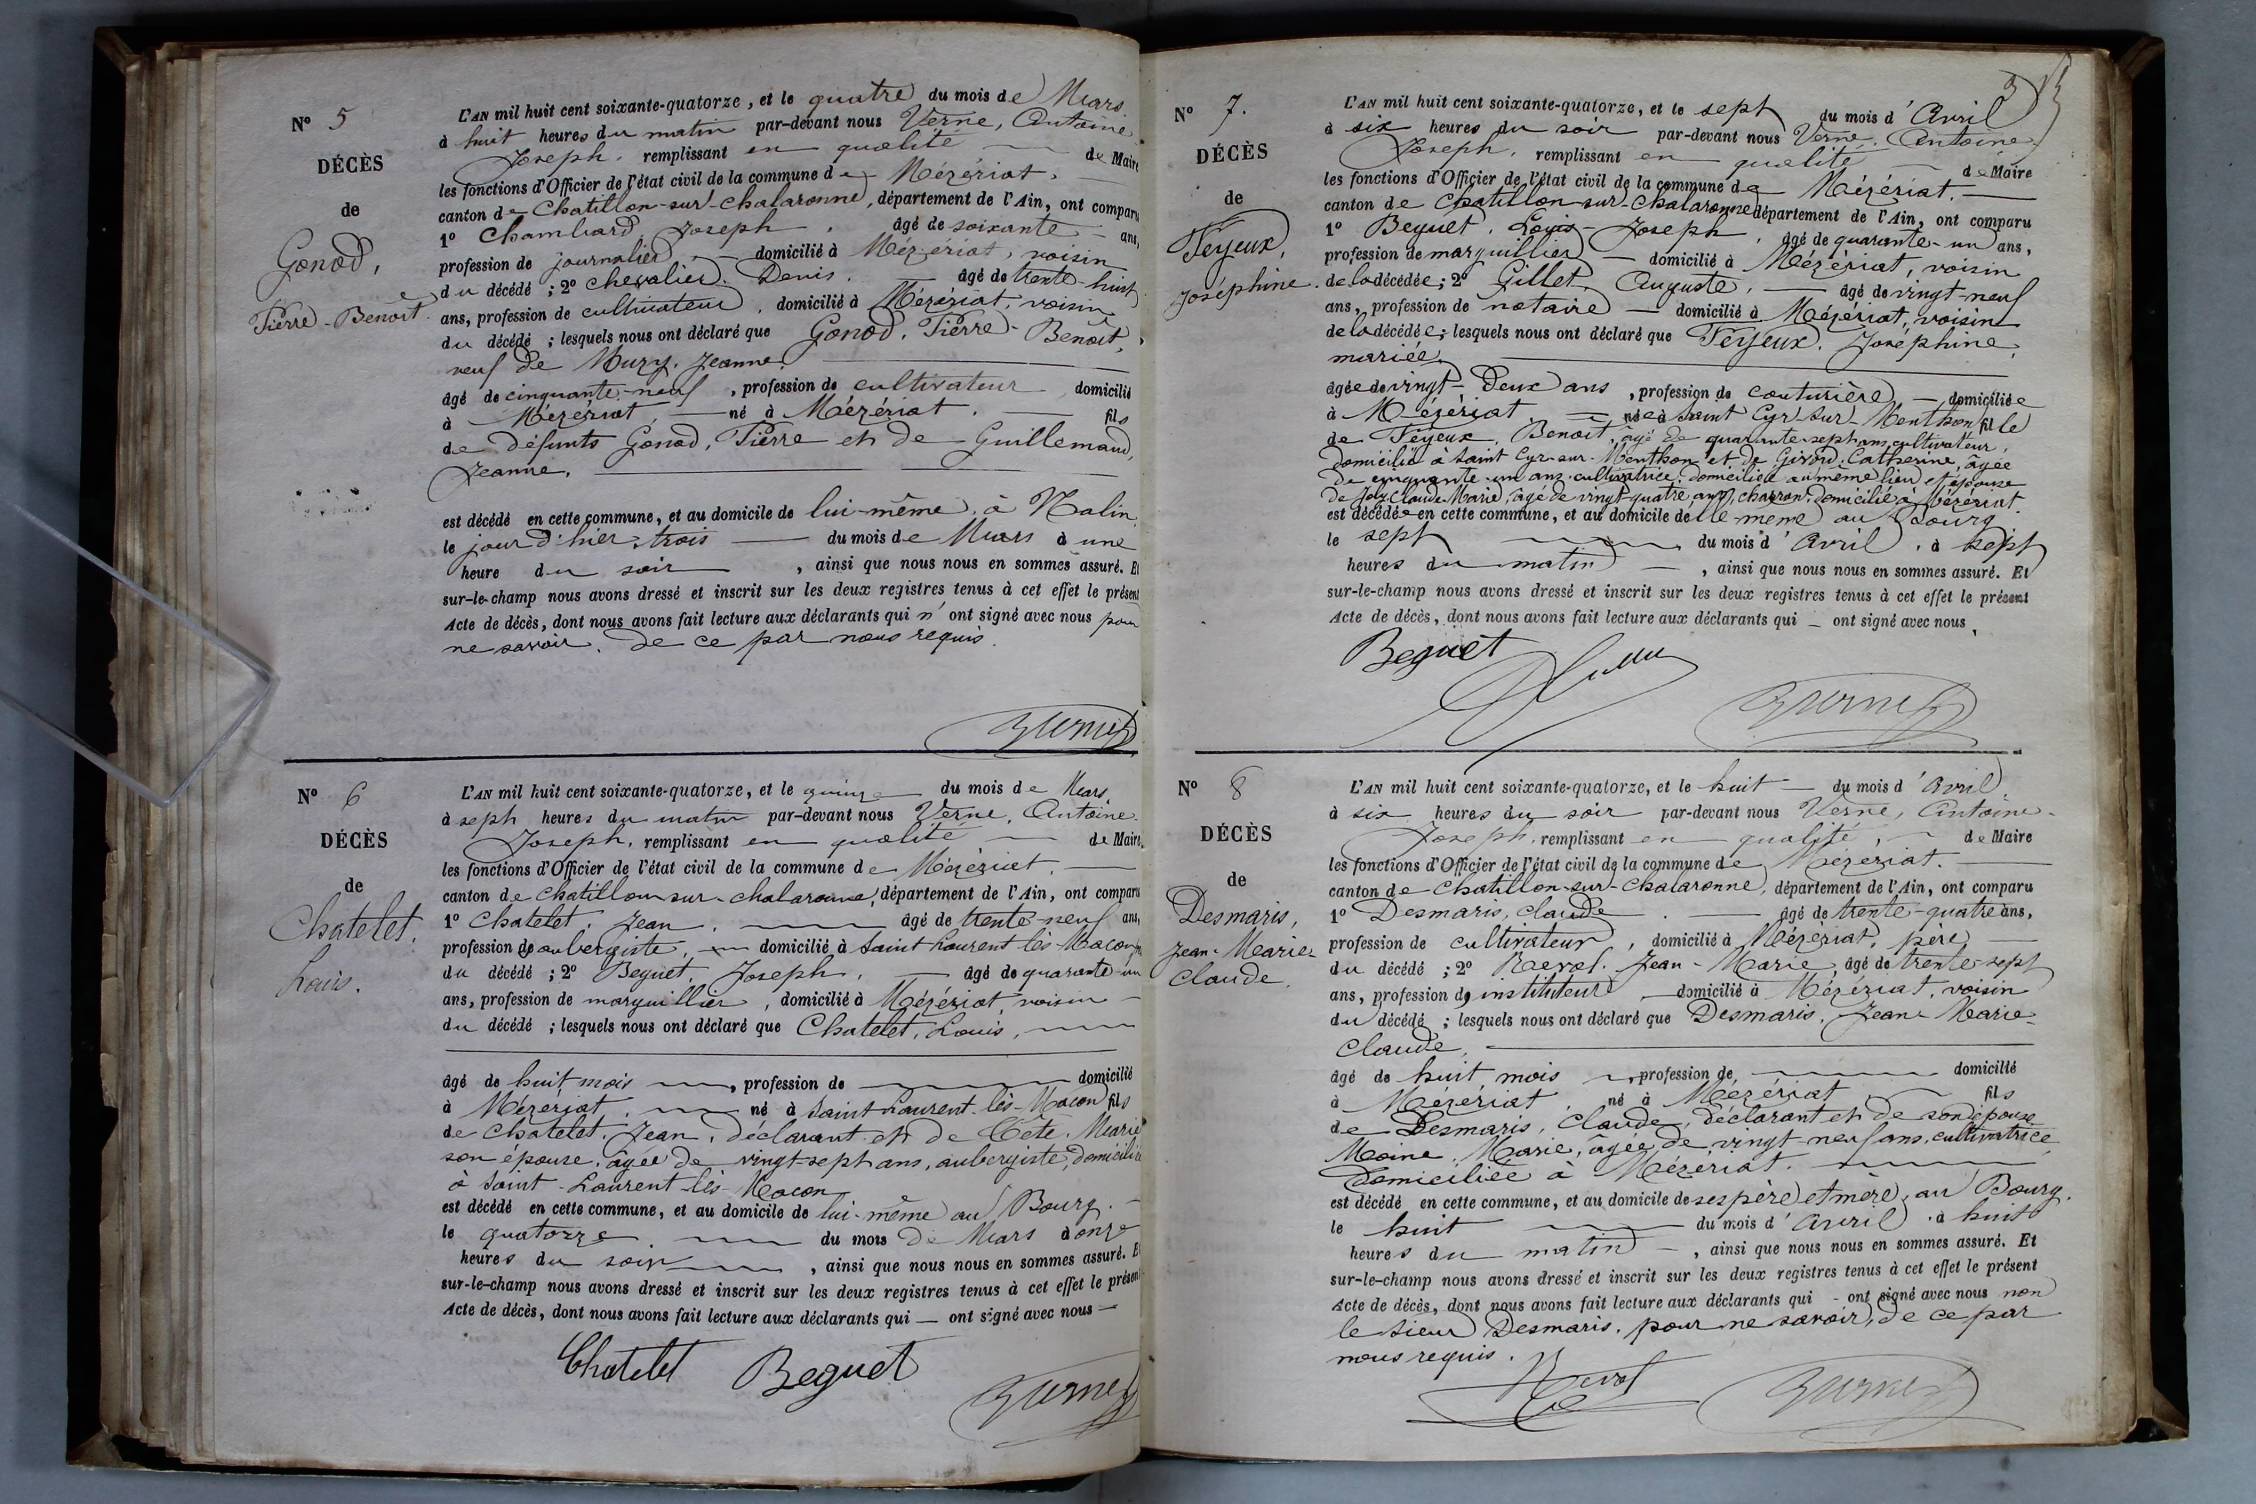 N° 5
DÉCÈS
de
Gonod,
Pierre-Benoît.
L'AN mil huit cent soixante-quatorze, et le quatre du mois de Mars
à huit heures du matin par-devant nous Verne, Antoine
Joseph, remplissant en qualité de Maire
les fonctions d'Officier de l'état civil de la commune de Mézériat,
canton de Chatillon-sur-Chalaronne, département de l'Ain, ont comparu
1° Chambard, Joseph, âgé de soixante ans,
profession de journalier, domicilié à Mézériat, voisin
du décédé ; 2° Chevalier, Denis, âgé de trente-huit
ans, profession de cultivateur, domicilié à Mézériat, voisin
du décédé ; lesquels nous ont déclaré que Gonod, Pierre-Benoît,
veuf de Mury, Jeanne,
âgé de cinquante-neuf, profession de cultivateur domicilié
à Mézériat, né à Mézériat, fils
de défunts Gonod, Pierre et de Guillemaud,
Jeanne,
est décédé en cette commune, et au domicile de lui-même, à Malin,
le jour d'hier, trois du mois de Mars à une
heure du soir, ainsi que nous nous en sommes assuré. Et
sur-le-champ nous avons dressé et inscrit sur les deux registres tenus à cet effet le présent
Acte de décès, dont nous avons fait lecture aux déclarants qui n'ont signé avec nous pour
ne savoir, de ce par nous requis.
Verne
N° 6
DÉCÈS
de
Chatelet,
Louis.
L'AN mil huit cent soixante-quatorze, et le quinze du mois de Mars,
à sept heures du matin par-devant nous Verne, Antoine-
Joseph, remplissant en qualité de Maire
les fonctions d'Officier de l'état civil de la commune de Mézériat,
canton de Chatillon-sur-Chalaronne, département de l'Ain, ont comparu
1° Chatelet, Jean, âgé de trente-neuf ans,
profession de aubergiste, domicilié à Saint Laurent lès-Macon,
du décédé ; 2° Beguet, Joseph, âgé de quarante-un
ans, profession de marguillier, domicilié à Mézériat, voisin
du décédé ; lesquels nous ont déclaré que Chatelet, Louis,
âgé de huit mois, profession de domicilié
à Mézériat, né à Saint Laurent-lès-Macon fils
de Chatelet, Jean, déclarant et de Tête, Marie
son épouse, âgée de vingt-sept ans, aubergiste, domiciliée
à Saint-Laurent-lès-Macon
est décédé en cette commune, et au domicile de lui-même au Bourg.
le quatorze du mois de Mars à onze
heures du soir, ainsi que nous nous en sommes assuré. Et
sur-le-champ nous avons dressé et inscrit sur les deux registres tenus à cet effet le présent
Acte de décès, dont nous avons fait lecture aux déclarants qui — ont signé avec nous —
Chatelet Beguet
Verne
3
N° 7.
DÉCÈS
de
Téyeux,
Joséphine.
L'AN mil huit cent soixante-quatorze, et le sept du mois d'Avril
à six heures du soir par-devant nous Verne, Antoine-
Joseph, remplissant en qualité de Maire
les fonctions d'Officier de l'état civil de la commune de Mézériat.
canton de Chatillon-sur-Chalaronne département de l'Ain, ont comparu
1° Beguet, Louis-Joseph, âgé de quarante-un ans,
profession de marguillier domicilié à Mézériat, voisin
de la décédée ; 2° Gillet, Auguste, âgé de vingt-neuf
ans, profession de notaire domicilié à Mézériat, voisin
de la décédée ; lesquels nous ont déclaré que Téyeux, Joséphine,
mariée
âgée de vingt-deux ans, profession de couturière domiciliée
à Mézériat, née à Saint Cyr-sur-Menthon fille
de Téyeux, Benoit, âgé de quarante-sept ans, cultivateur,
domicilié à Saint Cyr-sur-Menthon et de Girod, Catherine, âgée
de cinquante-un ans, cultivatrice, domiciliée au même lieu et épouse
de Joly, Claude-Marie, âgé de vingt-quatre ans, charron, domicilié à Mézériat.
est décédée en cette commune, et au domicile d'elle-même au Bourg
le sept du mois d'Avril, à sept
heures du matin, ainsi que nous nous en sommes assuré. Et
sur-le-champ nous avons dressé et inscrit sur les deux registres tenus à cet effet le présent
Acte de décès, dont nous avons fait lecture aux déclarants qui — ont signé avec nous,
Beguet
Verne
N° 8
DÉCÈS
de
Desmaris,
Jean-Marie-
Claude.
L'AN mil huit cent soixante-quatorze, et le huit du mois d'Avril,
à six heures du soir par-devant nous Verne, Antoine-
Joseph, remplissant en qualité, de Maire
les fonctions d'Officier de l'état civil de la commune de Mézériat.
canton de Chatillon-sur-Chalaronne, département de l'Ain, ont comparu
1° Desmaris, Claude, âgé de trente-quatre ans,
profession de cultivateur, domicilié à Mézériat, père
du décédé ; 2° Revol, Jean-Marie, âgé de trente-sept
ans, profession de instituteur, domicilié à Mézériat, voisin
du décédé ; lesquels nous ont déclaré que Desmaris, Jean-Marie-
Claude,
âgé de huit mois, profession de domicilié
à Mézériat, né à Mézériat, fils
de Desmaris, Claude, déclarant et de son épouse
Moine, Marie, âgée de vingt-neuf ans, cultivatrice
domiciliée à Mézériat.
est décédé en cette commune, et au domicile de ses père et mère, au Bourg.
le huit du mois d'Avril, à huit
heures du matin, ainsi que nous nous en sommes assuré. Et
sur-le-champ nous avons dressé et inscrit sur les deux registres tenus à cet effet le présent
Acte de décès, dont nous avons fait lecture aux déclarants qui - ont signé avec nous non
le sieur Desmaris, pour ne savoir, de ce par
nous requis.
Revol
Verne